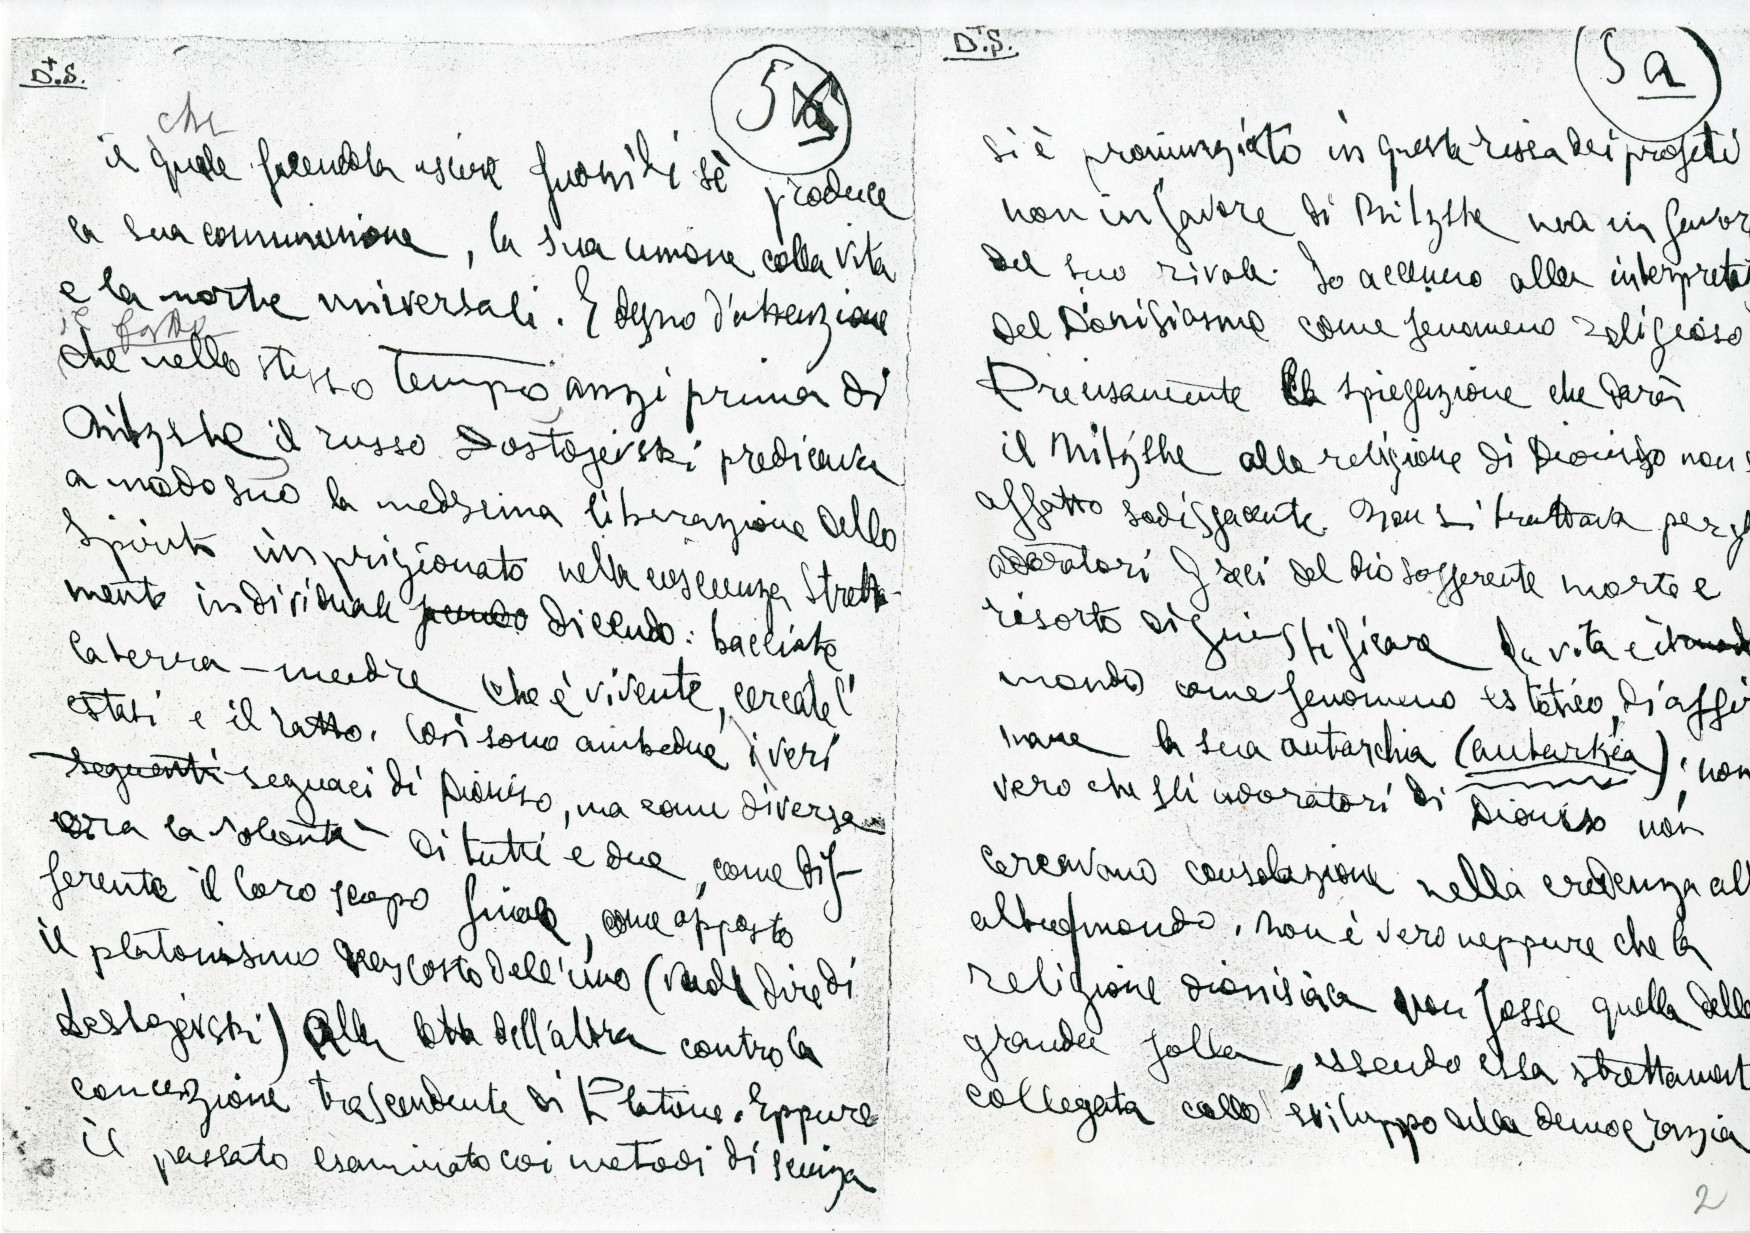 D.S.
5
che
il quale facendola uscire fuori di sè produce
la sua comunione, la sua unione colla vita
e la morte universali. È degno d'attenzione
il fatto
che nello stesso tempo anzi prima di
Nitzshe il russo Dostojevski predicava
a modo suo la medesima liberazione dello
spirito imprigionato nella coscienza stretta-
mente individuale dicendo: bacciate
la terra-madre che è vivente, cercate l'
estasi e il ratto. Così sono ambedue i veri
seguenti seguaci di Dioniso, ma come diversa
era la volontà di tutti e due, come dif-
ferente il loro scopo finale, come opposto
il platonismo nascosto dell'uno (vuol dire di
Dostojevski) alla lotta dell'altra contro la
concezione trascendente di Platone. Eppure
il passato esaminato coi metodi di scienza
D.S.
5a
si è pronunziato in questa rissa dei profeti
non in favore di Nitzshe ma in favor
del suo rivale. Io accenno alla interpreta
del Dionisiasmo come fenomeno religioso
Precisamente la spiegazione che darà
il Nitzshe alla religione di Dioniso non
affatto sodisfacente. Non si trattava per
adoratori Greci del dio sofferente morto e
risorto di giustificare la vita e il
mondo come fenomeno estetico, di affer
mare la sua autarchia (autarkéa); non
vero che gli adoratori di Dioniso non
cercavano consolazione nella credenza all'
altro mondo. Non è vero neppure che la
religione dionisiaca non fosse quella della
grande folla, essendo essa strettament
collegata collo sviluppo della democrazia
2